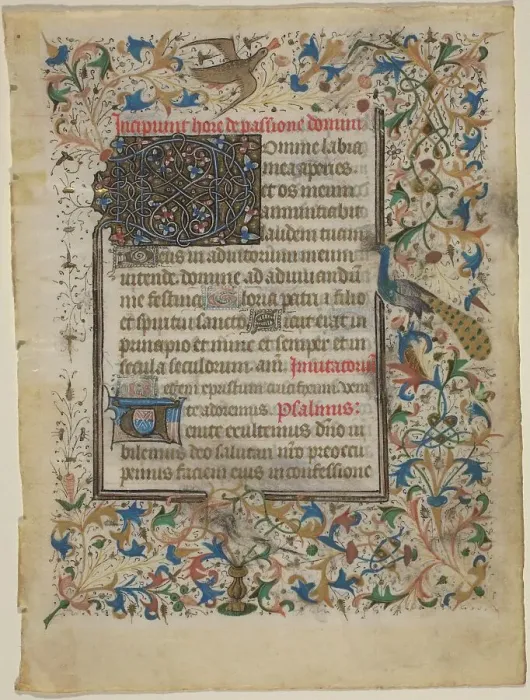 Incipiunt hore de passione domini
Domine labia
mea aperies
et os meum
annunciabit
laudem tuam
Deus in adiutorium meum
intende. domine ad adiuuandū
me festina Gloria patri ⁊ filio
et spiritui sancto Sicut erat in
principio et nunc et semper et in
secula seculorum. am̄. Inuitatoriū
Regem xpristum crucifixum. veni
te adoremus. Psalmus:
Venite exultemus dn̄o iu
bilemus deo salutari nr̄o preoccu
pemus faciem eius in confessione